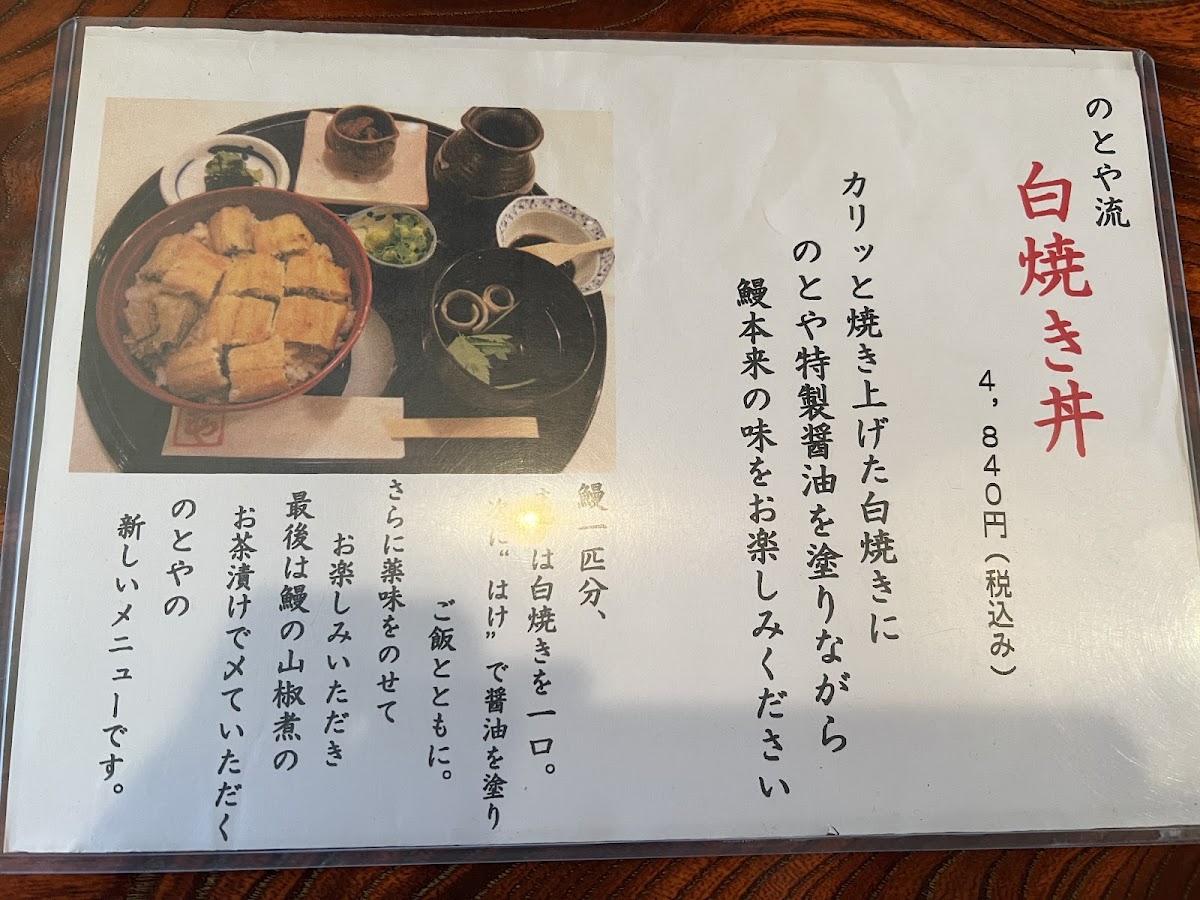 のとや流
白焼き丼
4,840円(税込み)
カリッと焼き上げた白焼きに
のとや特製醤油を塗りながら
鰻本来の味をお楽しみください
鰻一匹分、
は白焼きを一口。
次に“はけ”で醤油を塗り
ご飯とともに。
さらに薬味をのせて
お楽しみいただき
最後は鰻の山椒煮の
お茶漬けで〆ていただく
のとやの
新しいメニューです。